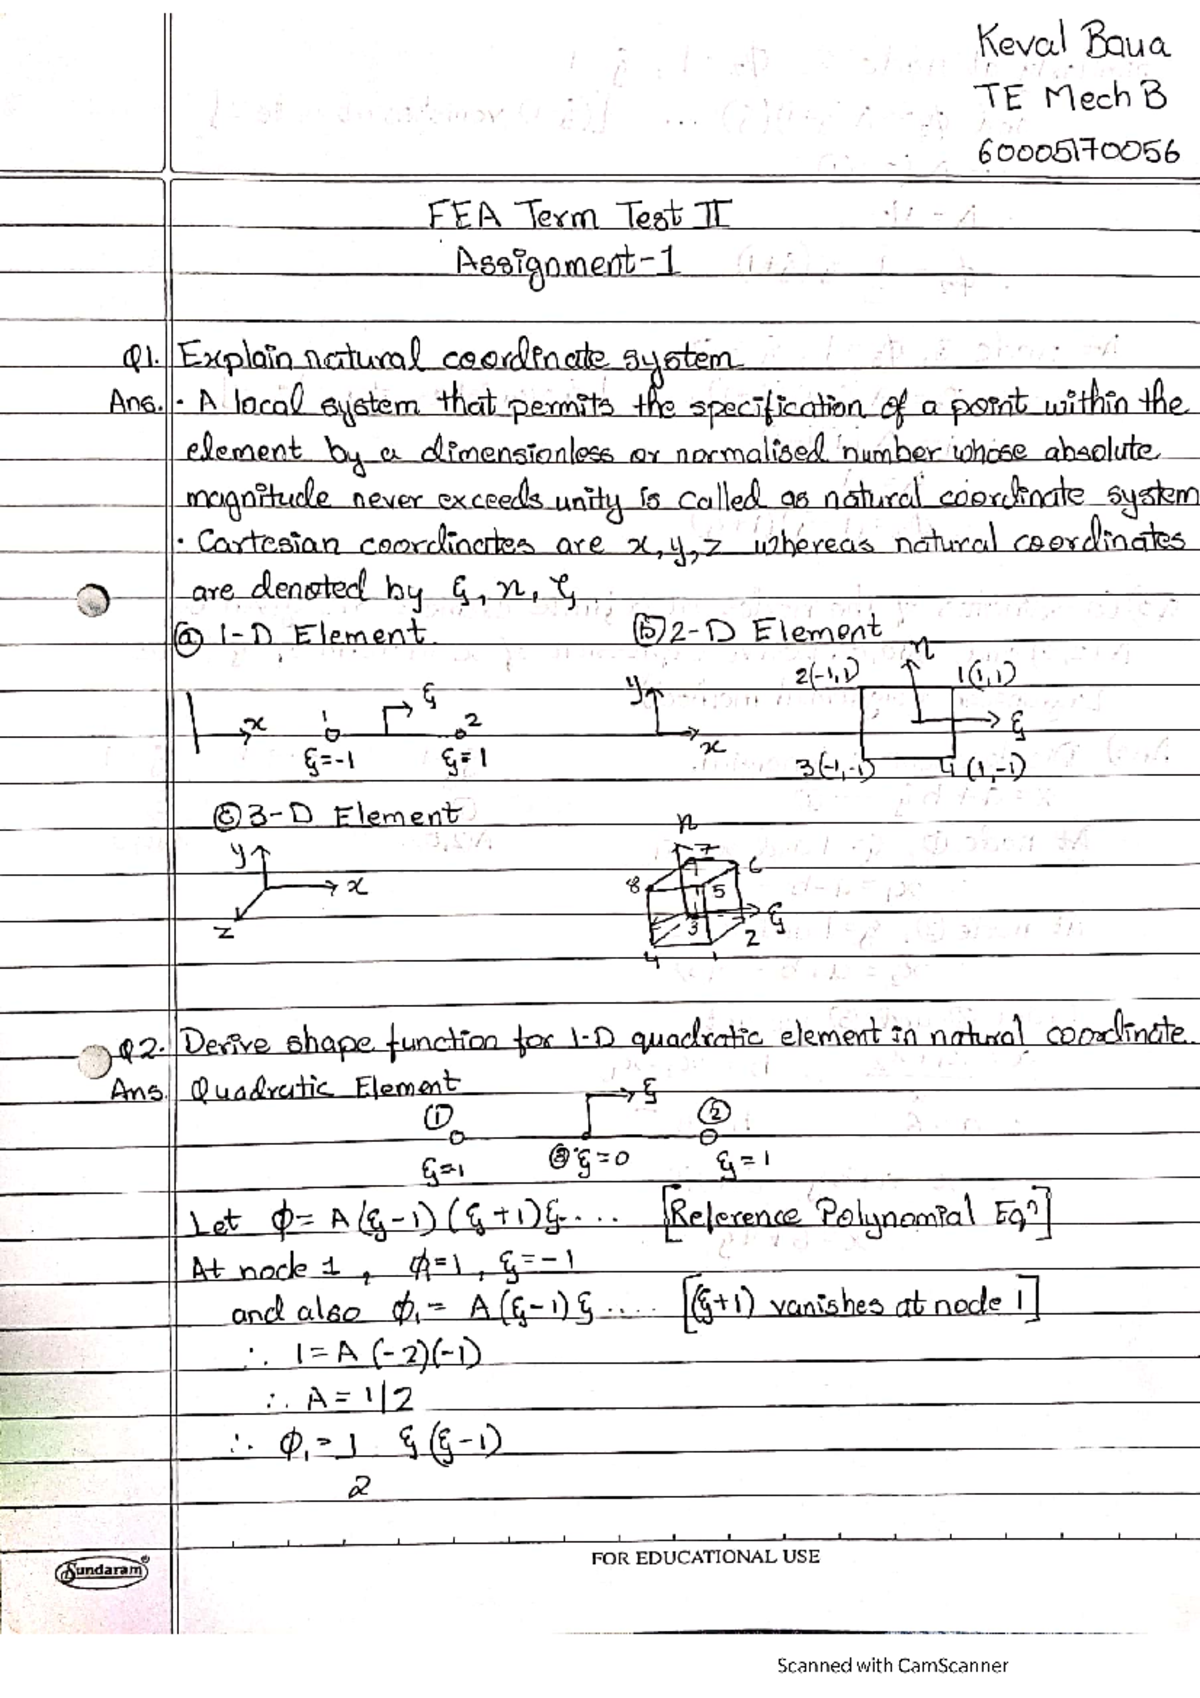 Keval Bava
TE Mech B
60005170056
FEA Term Test II
Assignment-1
Q1. Explain natural coordinate system
Ans. • A local system that permits the specification of a point within the
element by a dimensionless or normalised number whose absolute
magnitude never exceeds unity is called as natural coordinate system
• Cartesian coordinates are x, y, z whereas natural coordinates
are denoted by ξ, η, ζ
ⓐ 1-D Element ⓑ 2-D Element
η
2(-1,1) 1(1,1)
x 1 ξ 2 y x ξ
ξ=-1 ξ=1 3(-1,-1) 4(1,-1)
ⓒ 3-D Element
η
y 7 6
x 8 5 ξ
z 3 2
4 1
Q2. Derive shape function for 1-D quadratic element in natural coordinate
Ans. Quadratic Element ξ
① ②
ξ=1 ③ ξ=0 ξ=1
Let ϕ= A(ξ-1)(ξ+1)ξ.... [Reference Polynomial Eqⁿ]
At node 1, ϕ=1, ξ=-1
and also ϕ₁= A(ξ-1)ξ.... [(ξ+1) vanishes at node 1]
∴ 1=A(-2)(-1)
∴ A=1/2
∴ ϕ₁= 1 ξ(ξ-1)
2
Sundaram®
FOR EDUCATIONAL USE
Scanned with CamScanner